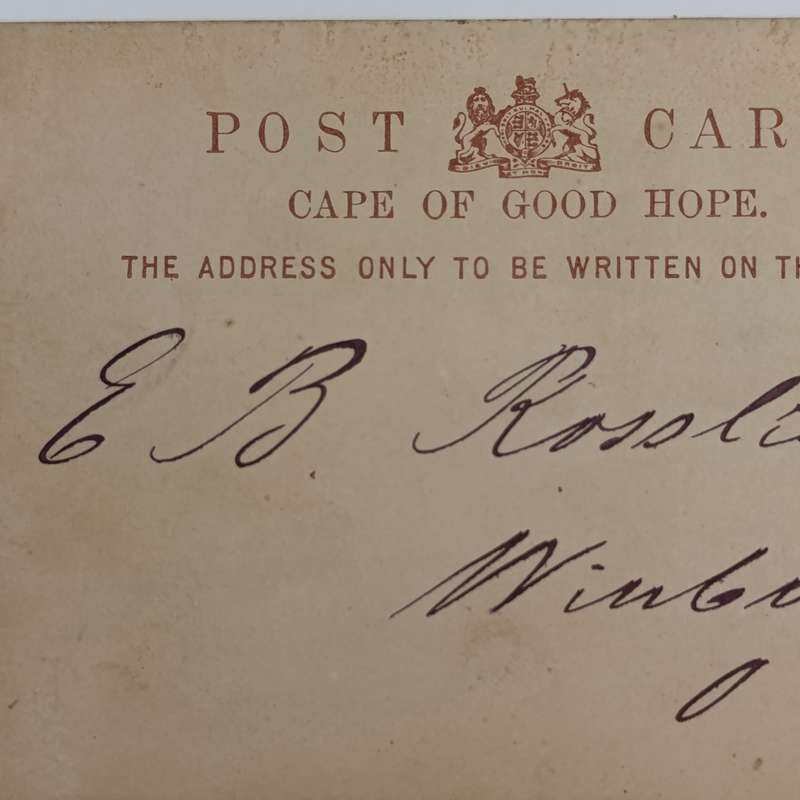 POST CAR
CAPE OF GOOD HOPE.
THE ADDRESS ONLY TO BE WRITTEN ON TH
E B Rossli
Winbu
O